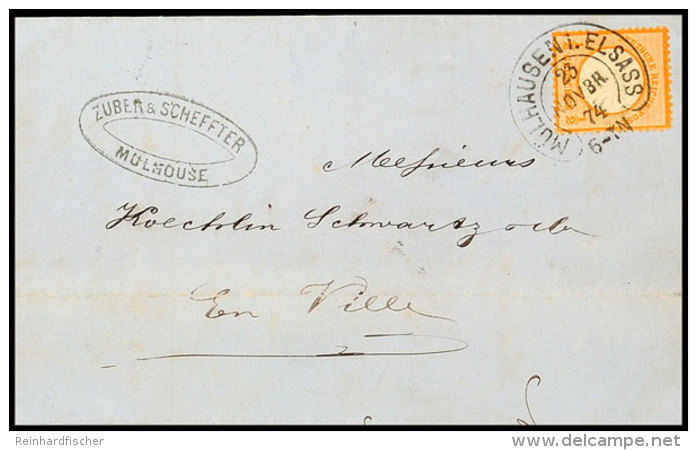 MÜLHAUSEN i. ELSASS
23
NOVBR
74
6-7N
ZUBER & SCHEFFTER
MULHOUSE
Messieurs
Koechlin Schwartz
En Ville
Reinhardfischer
delcampe.net